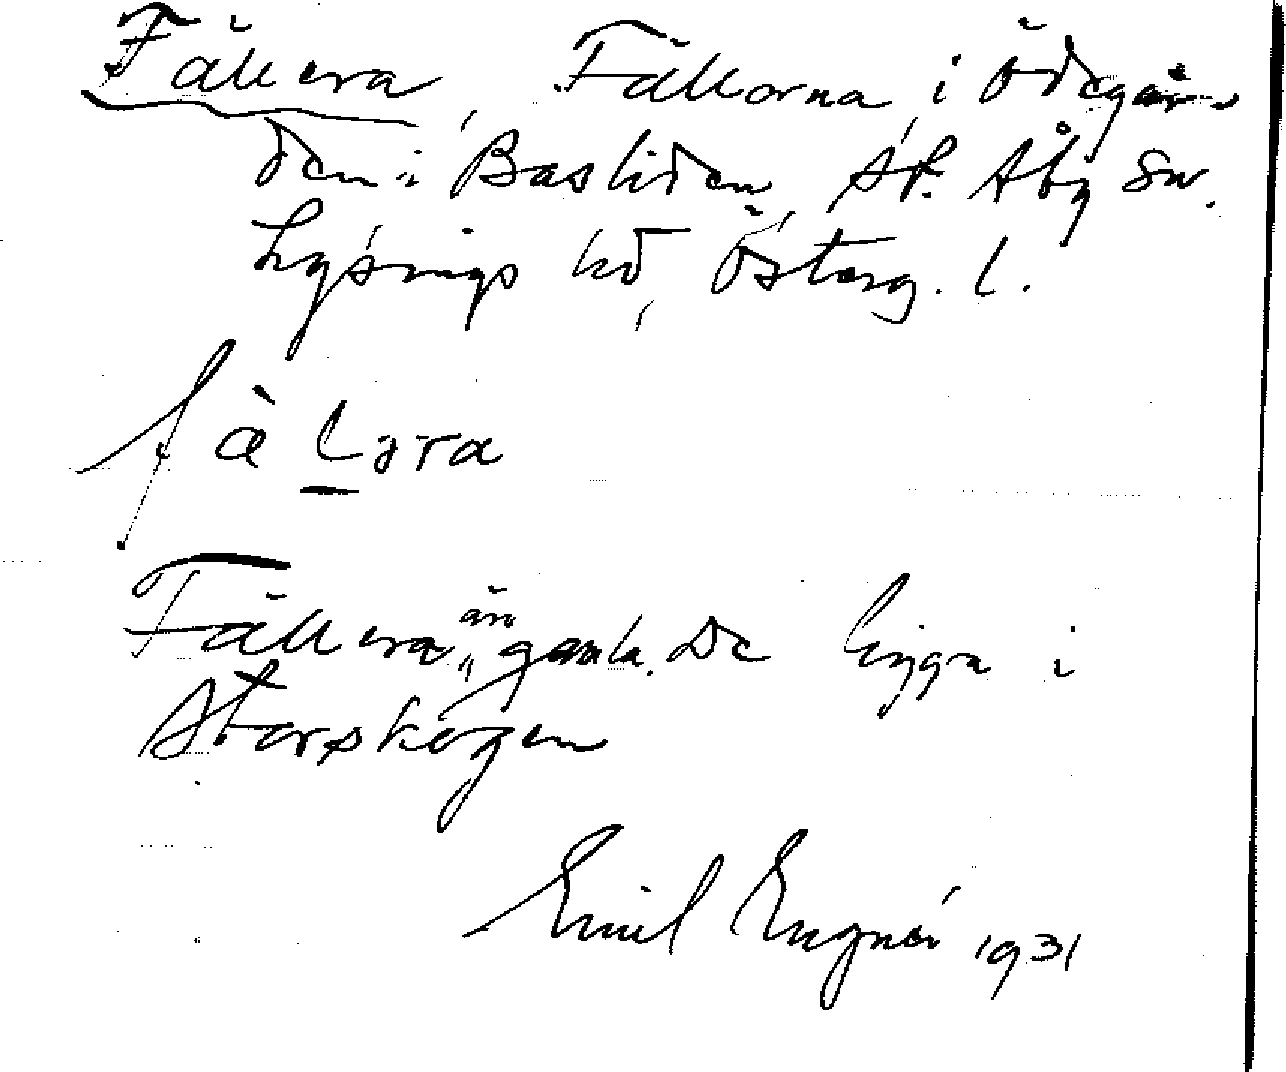 Fällera, Fällorna, i ödegår-
den i Basliden, st. Åby sn.
Lysings hd, Österg. l.
fàlara
Fällera äro gamla. De ligga i
Storskogen
Emil Engnér 1931